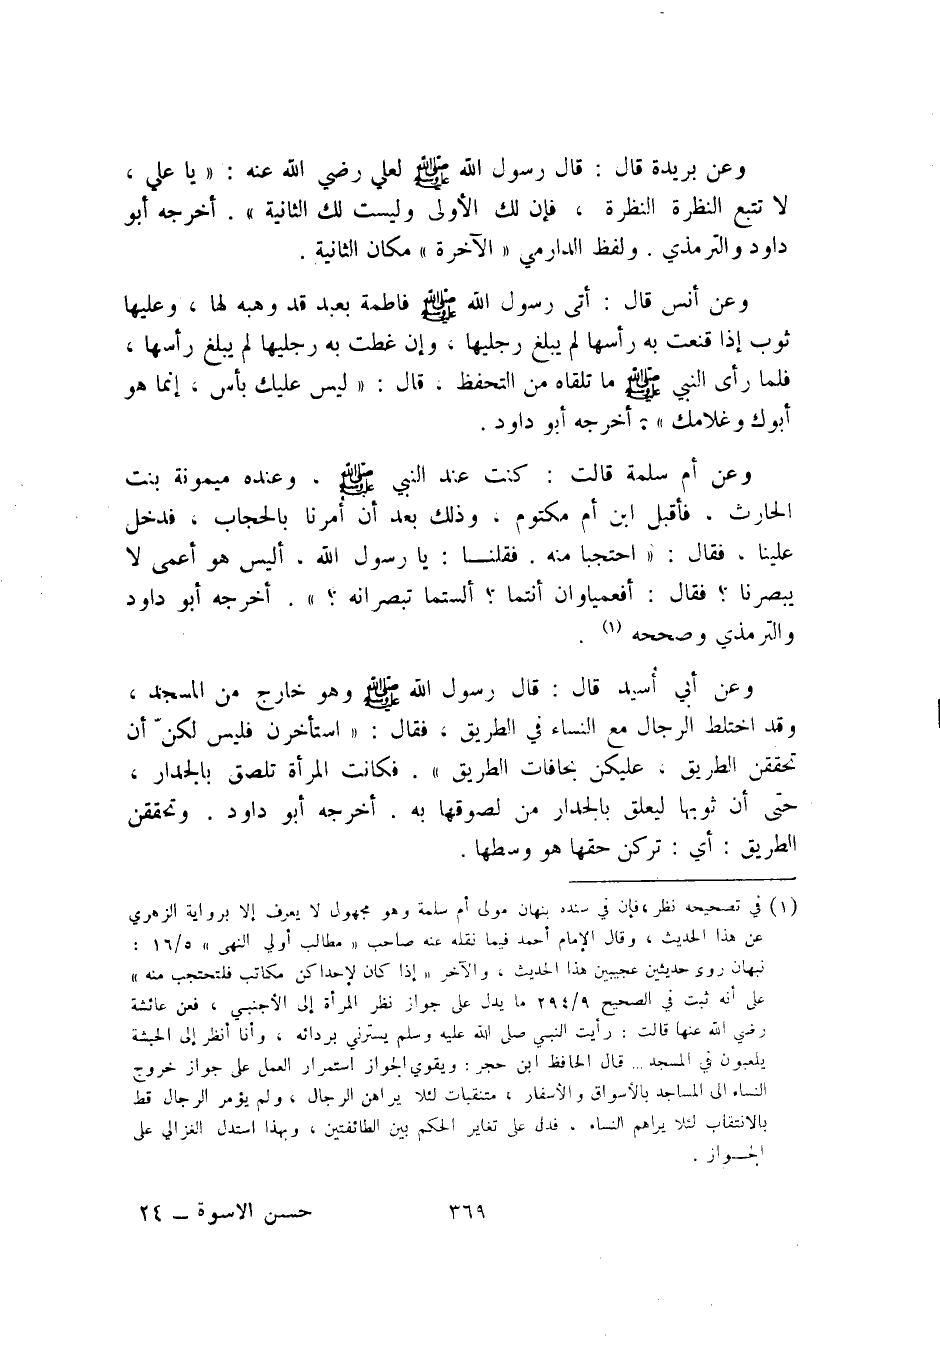 وعن بريدة قال : قال رسول الله ﷺ لعلي رضي الله عنه : « يا علي ،
لا تتبع النظرة النظرة ، فإن لك الأولى وليست لك الثانية » . أخرجه أبو
داود والترمذي . ولفظ الدارمي « الآخرة » مكان الثانية .
وعن أنس قال : أتى رسول الله ﷺ فاطمة بعبد قد وهبه لها ، وعليها
ثوب إذا قنعت به رأسها لم يبلغ رجليها ، وإن غطت به رجليها لم يبلغ رأسها ،
فلما رأى النبي ﷺ ما تلقاه من التحفظ ، قال : « ليس عليك بأس ، إنما هو
أبوك وغلامك » ؛ أخرجه أبو داود .
وعن أم سلمة قالت : كنت عند النبي ﷺ . وعنده ميمونة بنت
الحارث . فأقبل ابن أم مكتوم ، وذلك بعد أن أُمرنا بالحجاب ، فدخل
علينا ، فقال : « احتجبا منه . فقلنا : يا رسول الله . أليس هو أعمى لا
يبصرنا ؟ فقال : أفعمياوان أنتما ؟ ألستما تبصرانه ؟ » . أخرجه أبو داود
والترمذي وصححه (١) .
وعن أبي أُسيد قال : قال رسول الله ﷺ وهو خارج من المسجد ،
وقد اختلط الرجال مع النساء في الطريق ، فقال : « استأخرن فليس لكنّ أن
تحققن الطريق ، عليكن بحافات الطريق » . فكانت المرأة تلصق بالجدار ،
حتّى أن ثوبها ليعلق بالجدار من لصوقها به . أخرجه أبو داود . وتحققن
الطريق : أي : تركن حقها هو وسطها .
(١) في تصحيحه نظر ، فإن في سنده بنهان مولى أم سلمة وهو مجهول لا يعرف إلا برواية الزهري
عن هذا الحديث ، وقال الإمام أحمد فيما نقله عنه صاحب « مطالب أولي النهى » ١٦/٥ :
نبهان روى حديثين عجيبين هذا الحديث ، والآخر « إذا كان لإحداكن مكاتب فلتحتجب منه »
على أنه ثبت في الصحيح ٢٩٤/٩ ما يدل على جواز نظر المرأة إلى الأجنبي ، فعن عائشة
رضي الله عنها قالت : رأيت النبي صلى الله عليه وسلم يسترني بردائه ، وأنا أنظر إلى الحبشة
يلعبون في المسجد ... قال الحافظ ابن حجر : ويقوي الجواز استمرار العمل على جواز خروج
النساء الى المساجد بالأسواق والأسفار ، متنقبات لئلا يراهن الرجال ، ولم يؤمر الرجال قط
بالانتقاب لئلا يراهم النساء . فدل على تغاير الحكم بين الطائفتين ، وبهذا استدل الغزالي على
الجواز .
٣٦٩
حسن الاسوة – ٢٤